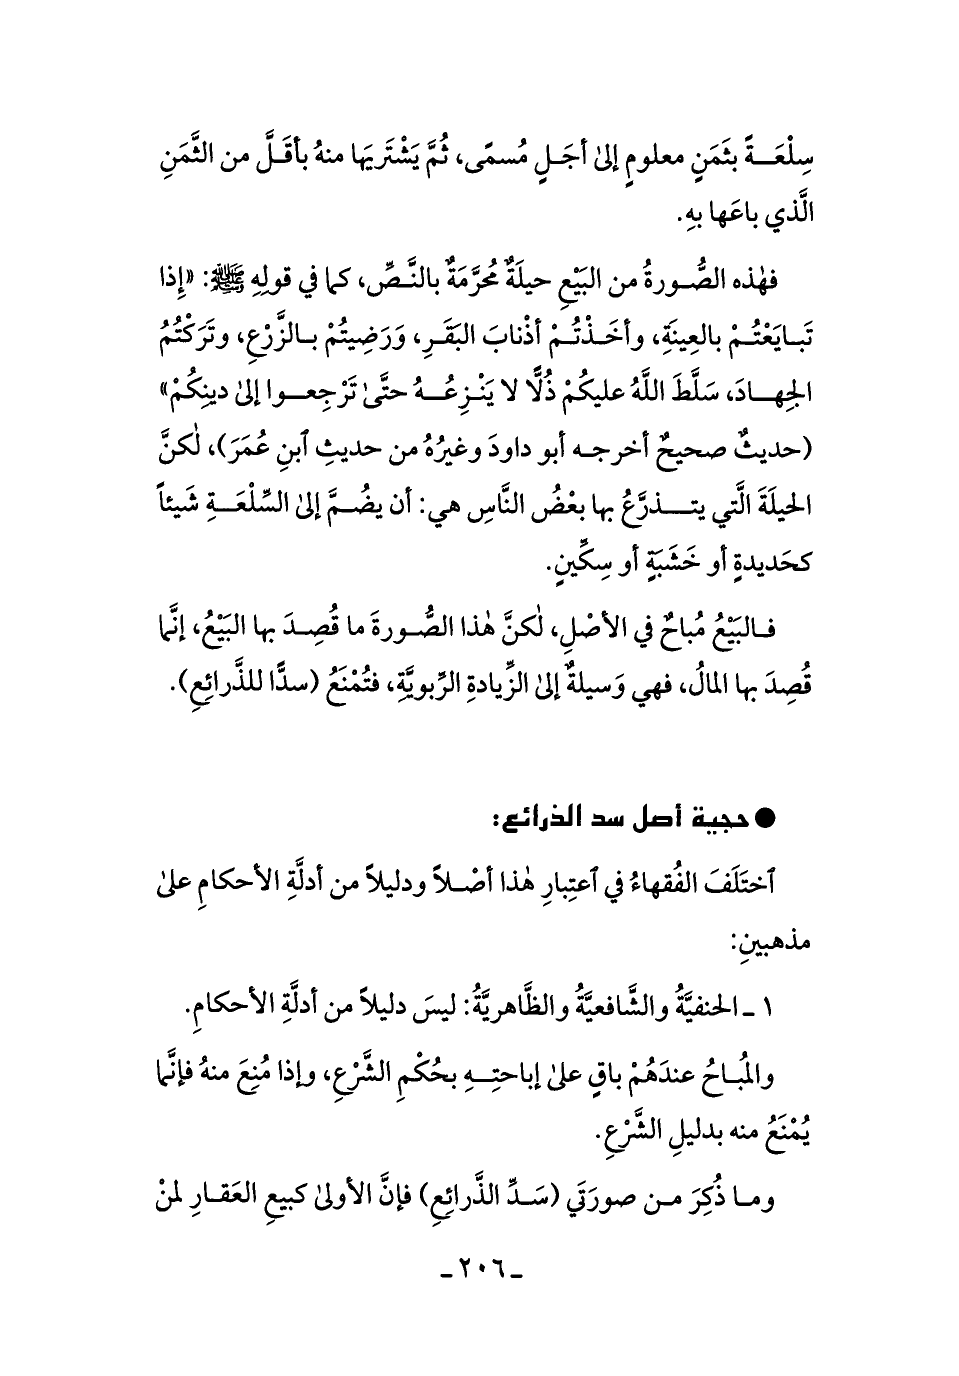 سِلْعَــةً بثَمَنٍ معلومٍ إلىٰ أجَـلٍ مُسمّى، ثُمَّ يَشْتَريَها منهُ بأقَـلَّ من الثَّمَنِ
الَّذي باعَها بهِ.
فهٰذه الصُّـورةُ من البَيْعِ حيلَةٌ مُحرَّمَةٌ بالنَّـصِّ، كما في قولِهِ ﷺ: «إِذا
تَبـايَعْتُـمْ بالعِينَةِ، وأخَـذْتُـمْ أذْنابَ البَقَـرِ، وَرَضِيتُمْ بـالزَّرْعِ، وتَرَكْتُمُ
الجِهــادَ، سَلَّطَ اللَّهُ عليكُمْ ذُلًّا لا يَنْـزِعُــهُ حتَّىٰ تَرْجِعــوا إلىٰ دينِكُمْ»
(حديثٌ صحيحٌ أخرجـه أبو داودَ وغيرُهُ من حديثِ ٱبنِ عُمَرَ)، لٰكنَّ
الحيلَةَ الَّتي يتـــذرَّعُ بها بعْضُ النَّاسِ هي: أن يضُـمَّ إلىٰ السِّلْعَــةِ شَيئاً
كحَديدةٍ أو خَشَبَةٍ أو سِكِّينٍ.
فـالبَيْعُ مُباحٌ في الأصْلِ، لٰكنَّ هٰذا الصُّـورةَ ما قُصِـدَ بها البَيْعُ، إنَّما
قُصِدَ بها المالُ، فهي وَسيلةٌ إلىٰ الزِّيادةِ الرِّبويَّةِ، فتُمْنَعُ (سدًّا للذَّرائعِ).
● حجية أصل سد الذرائع:
ٱختَلَفَ الفُقهاءُ في ٱعتِبارِ هٰذا أصْـلاً ودليلاً من أدلَّةِ الأحكامِ علىٰ
مذهبينِ:
١ ـ الحنفيَّةُ والشَّافعيَّةُ والظَّاهريَّةُ: ليسَ دليلاً من أدلَّةِ الأحكامِ.
والمُبـاحُ عندَهُمْ باقٍ علىٰ إباحتِــهِ بحُكْمِ الشَّرْعِ، وإذا مُنِعَ منهُ فإنَّما
يُمْنَعُ منه بدليلِ الشَّرْعِ.
ومـا ذُكِرَ مـن صورَتَي (سَـدِّ الذَّرائعِ) فإنَّ الأولىٰ كبيعِ العَقـارِ لمنْ
ـ ٢٠٦ ـ